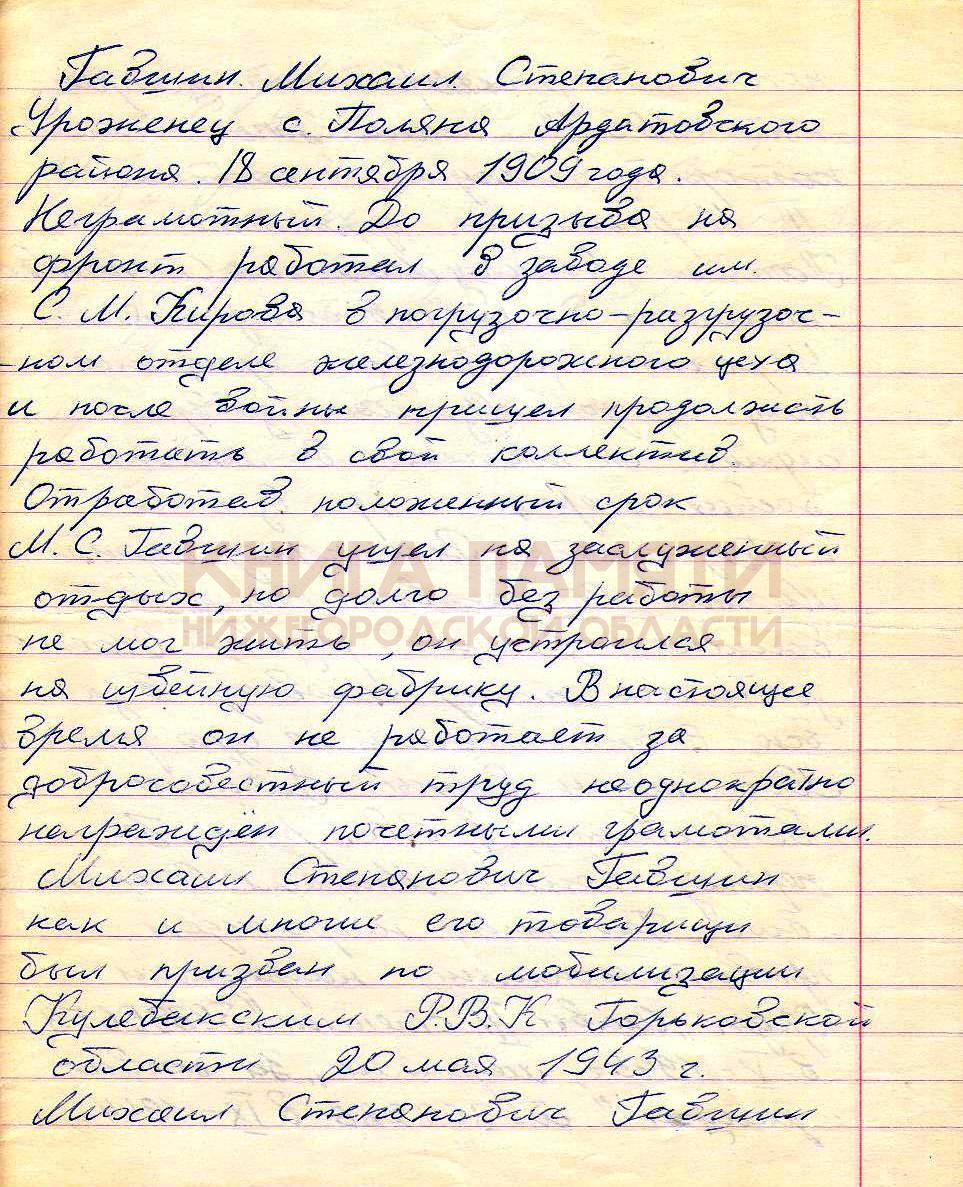 Гавшин Михаил Степанович
Уроженец с. Поляна Ардатовского
района. 18 сентября 1909 года.
Неграмотный. До призыва на
фронт работал в заводе им.
С. М. Кирова в погрузочно-разгрузоч-
-ном отделе железнодорожного цеха
и после войны пришел продолжать
работать в свой коллектив.
Отработав положенный срок
М. С. Гавшин ушел на заслуженный
КНИГА ПАМЯТИ
отдых, но долго без работы
НИЖЕГОРОДСКОЙ ОБЛАСТИ
не мог жить, он устроился
на швейную фабрику. В настоящее
время он не работает за
добросовестный труд неоднократно
награждён почетными грамотами.
Михаил Степанович Гавшин
как и многие его товарищи
был призван по мобилизации
Кулебакским Р.В.К Горьковской
области 20 мая 1943 г.
Михаил Степанович Гавшин